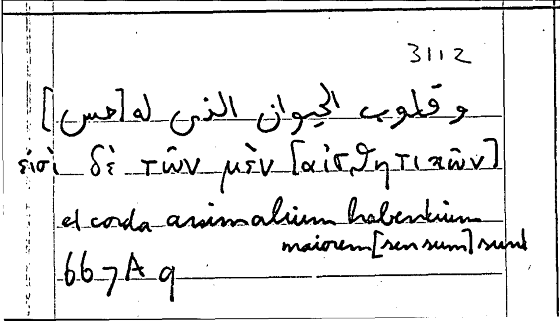 3112
و قلوب الحيوان الذى له [حس]
εἰσὶ δὲ τῶν μὲν [αἰσθητικῶν]
et corda animalium habentium
maiorem [sensum] sunt
667A9